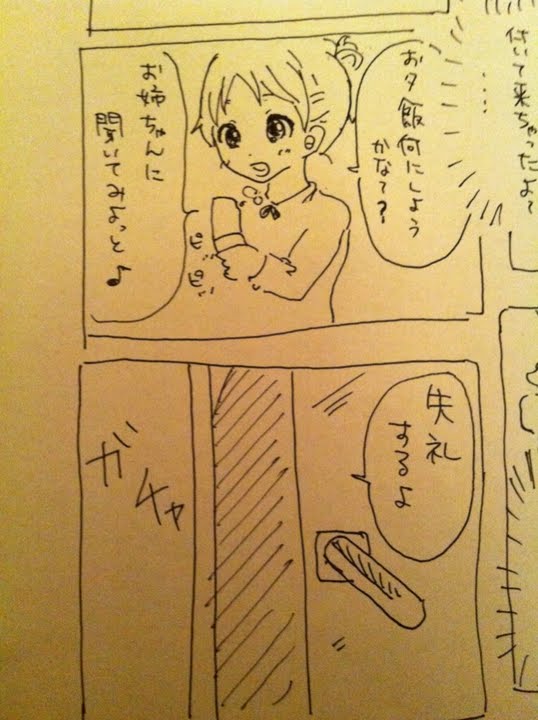 付いて来ちゃったよて
お夕飯何にしよう
かなて?
お姉ちゃんに
聞いてみよっと♪
失礼
するよ
ガチャ